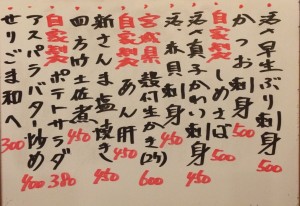 活〆早生ぶり刺身 500
かつお刺身 500
自家製 しめさば 500
活〆真子がれい刺身 450
活 赤貝刺身 450
宮城県 殻付生かき(2ケ) 600
自家製 あん肝 450
新さんま塩焼き 450
四方竹土佐煮 450
自家製 ポテトサラダ 380
アスパラバター炒め 400
せりごま和へ 300